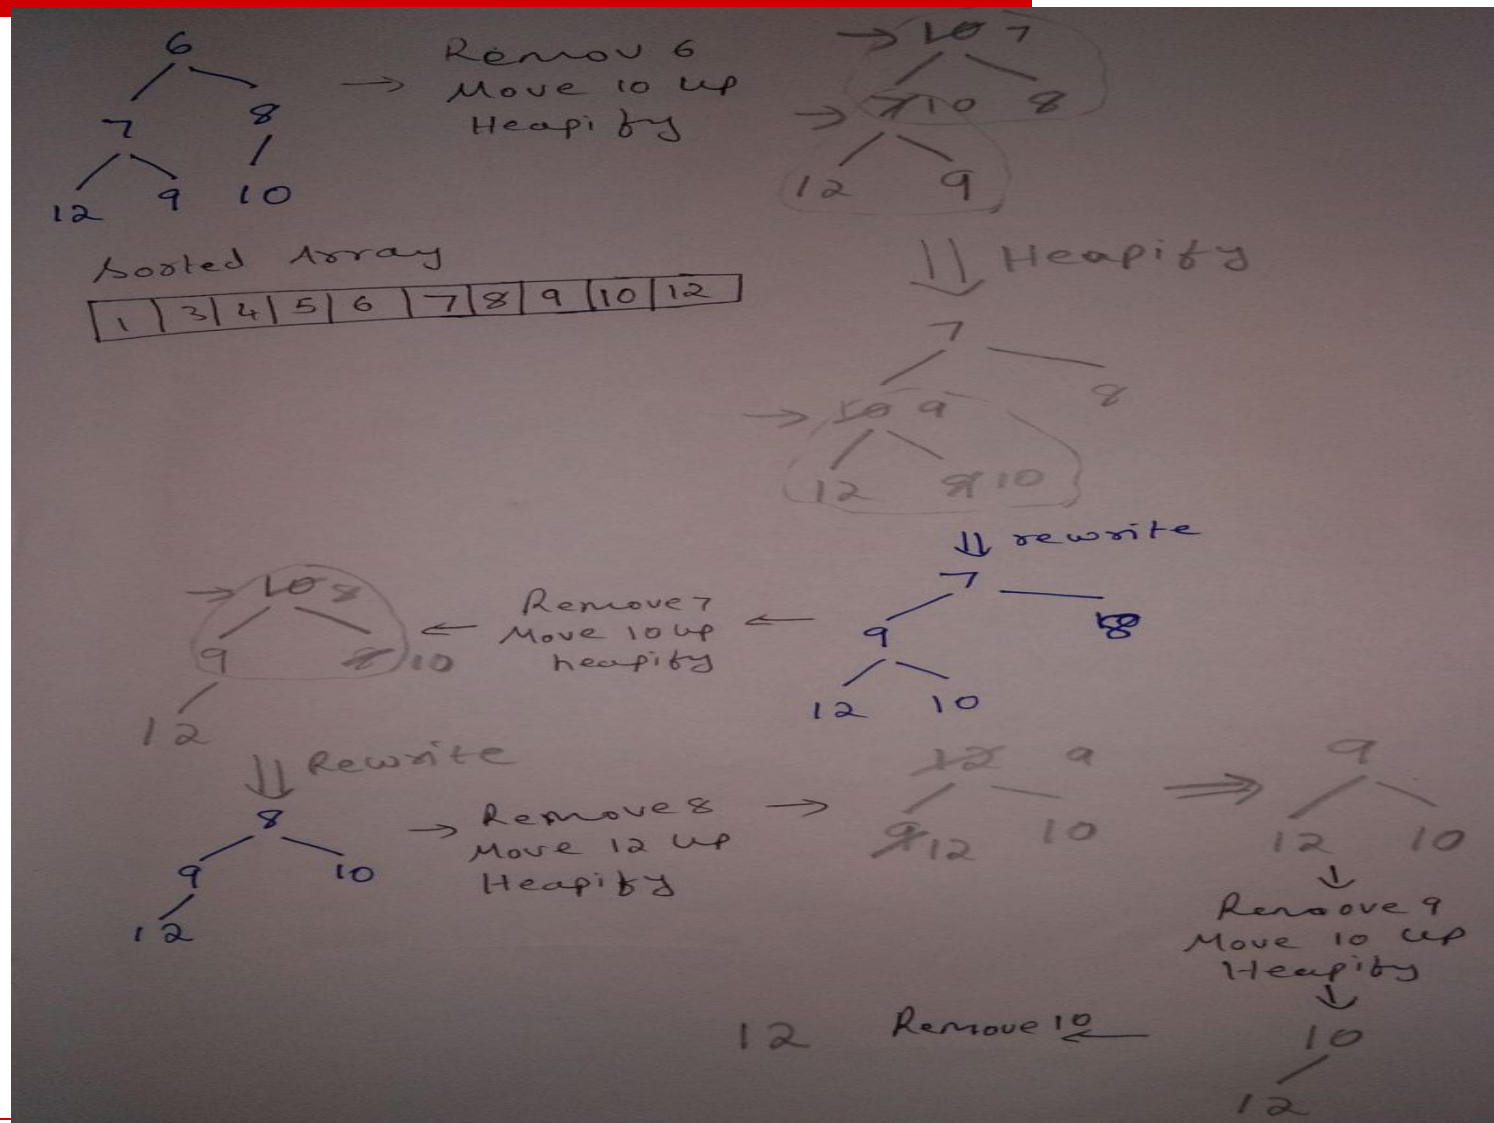 6
7 8
12 9 10
Remov 6
Move 10 up
Heapify
10 7
7 10 8
12 9
Sorted Array
1 3 4 5 6 7 8 9 10 12
Heapify
7
10 9 8
12 9 10
rewrite
7
9 8
12 10
Remove 7
Move 10 up
heapify
10 8
9 8 10
12
Rewrite
8
9 10
12
Remove 8
Move 12 up
Heapify
12 9
9 12 10
9
12 10
Remove 9
Move 10 up
Heapify
10
12
Remove 10
12